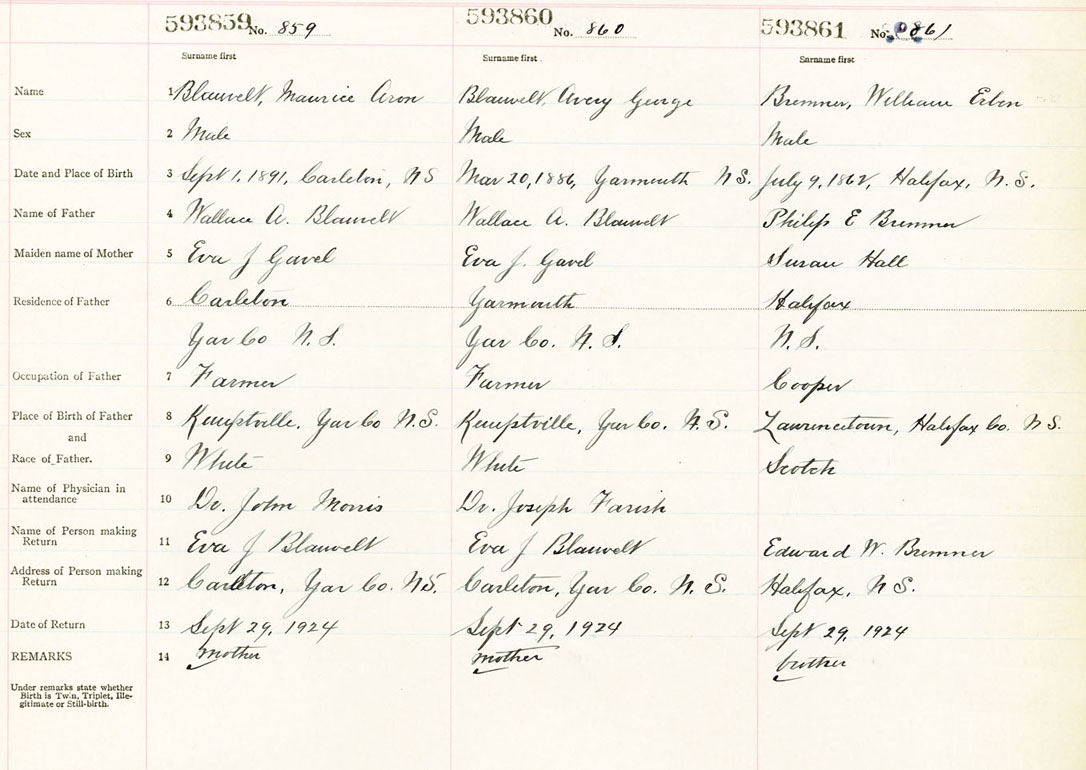 593859 No. 859 593860 No. 860 593861 No. 861
Surname first Surname first Surname first
Name 1 Blauvelt, Maurice Aron Blauvelt, Avery George Bremner, William Erbin
Sex 2 Male Male Male
Date and Place of Birth 3 Sept 1, 1891, Carleton, NS Mar 20, 1886, Yarmouth NS. July 9, 1862, Halifax, N.S.
Name of Father 4 Wallace A. Blauvelt Wallace A. Blauvelt Philip E Bremner
Maiden name of Mother 5 Eva J Gavel Eva J. Gavel Susan Hall
Residence of Father 6 Carleton Yarmouth Halifax
Yar Co N.S. Yar Co. N.S. N.S.
Occupation of Father 7 Farmer Farmer Cooper
Place of Birth of Father 8 Kemptville, Yar Co N.S. Kemptville, Yar Co. N.S. Lawrencetown, Halifax Co. NS
and
Race of Father. 9 White White Scotch
Name of Physician in
attendance 10 Dr. John Morris Dr. Joseph Farish
Name of Person making
Return 11 Eva J Blauvelt Eva J Blauvelt Edward W. Bremner
Address of Person making
Return 12 Carleton, Yar Co. NS. Carleton, Yar Co. N.S. Halifax, NS.
Date of Return 13 Sept 29, 1924 Sept 29, 1924 Sept 29, 1924
REMARKS 14 mother mother brother
Under remarks state whether
Birth is Twin, Triplet, Ille-
gitimate or Still-birth.